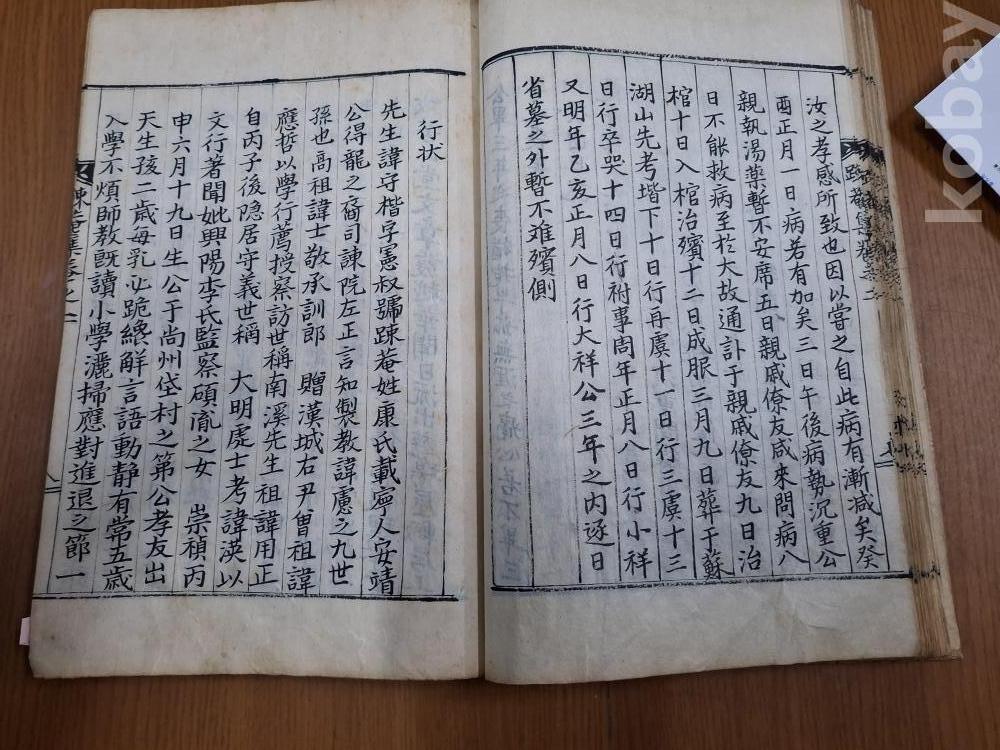 汝之孝感所致也因以嘗之自此病有漸減矣癸
酉正月一日病若有加矣三日午後病勢沉重公
親執湯藥暫不安席五日親戚僚友咸來問病八
日不能救病至於大故通訃于親戚僚友九日治
棺十日入棺治殯十二日成服三月九日葬于蘇
湖山先考堦下十日行再虞十一日行三虞十三
日行卒哭十四日行祔事周年正月八日行小祥
又明年乙亥正月八日行大祥公三年之内逐日
省墓之外暫不难殯側
行状
先生諱守楷字憲叔號踈菴姓康氏載寧人安靖
公得龍之裔司諫院左正言知製教諱慮之九世
孫也高祖諱士敬承訓郎 贈漢城右尹曾祖諱
應哲以學行薦授察訪世稱南溪先生祖諱用正
自丙子後隐居守義世稱 大明處士考諱渶以
文行著聞妣興陽李氏監察碩胤之女 崇禎丙
申六月十九日生公于尚州岱村之第公孝友出
天生孩二歲每乳必跪纔解言語動静有常五歲
入學不煩師教既讀小學灑掃應對進退之節一
踈菴集卷之二
八
kobay